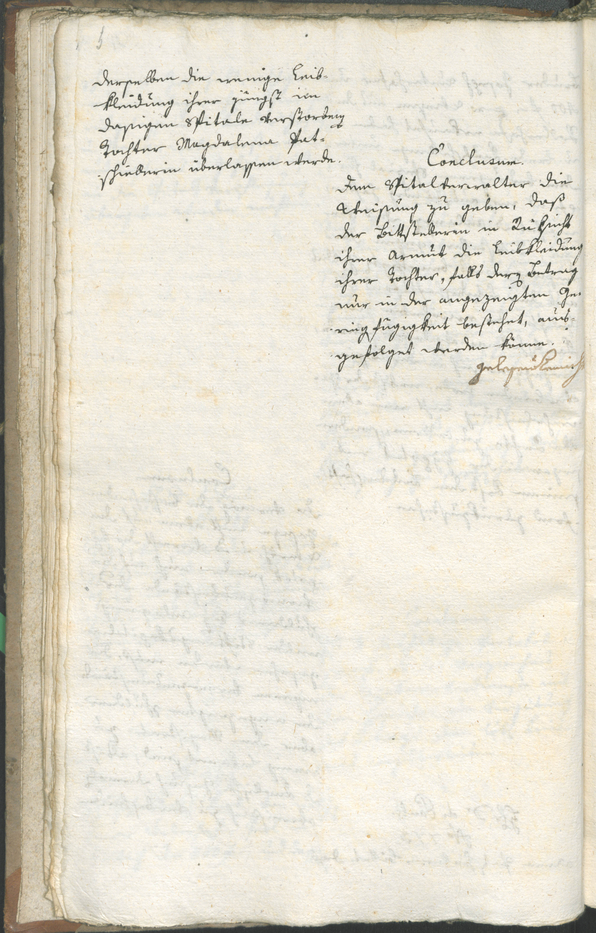 derselben die wenige Leib-
kleidung ihrer jüngst im
dasigen Spitale verstorbenen
Tochter Magdalena Pat-
schiellerin überlassen werde.
Conclusum.
Dem Spitalverwalter die
Weisung zu geben, daß
der Bittstellerin in Rüksicht
ihrer Armut die Leibkleidung
ihrer Tochter, falls derer Betrag
nur in der angezeigten Ge-
ringfügigkeit bestehet, aus-
gefolget werden könne.